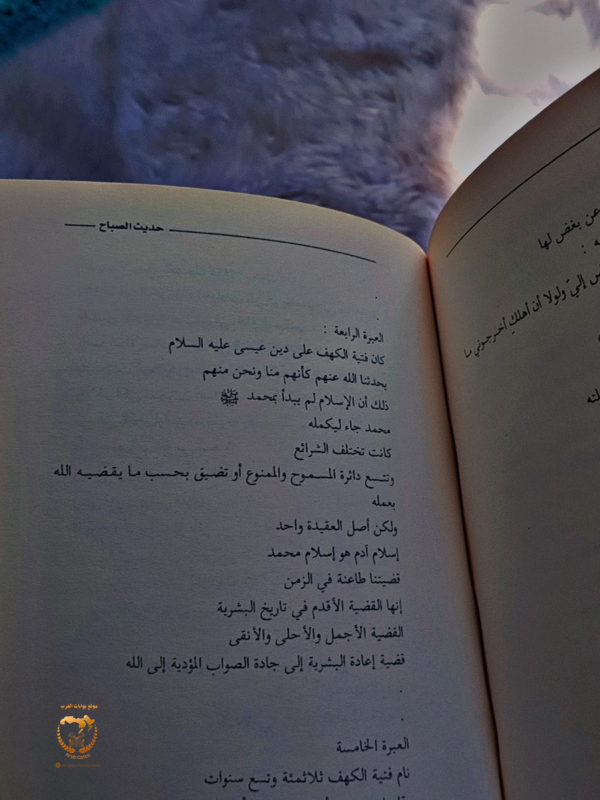 عن بغض لها
إليّ ولولا أن أهلك أخرجوني منك
حديث الصباح
.
.
العبرة الرابعة :
كان فتية الكهف على دين عيسى عليه السلام
يحدثنا الله عنهم كأنهم منا ونحن منهم
ذلك أن الإسلام لم يبدأ بمحمد ﷺ
محمد جاء ليكمله
كانت تختلف الشرائع
وتتسع دائرة المسموح والممنوع أو تضيق بحسب ما يقضيه الله
بعمله
ولكن أصل العقيدة واحد
إسلام آدم هو إسلام محمد
قضيتنا طاعنة في الزمن
إنها القضية الأقدم في تاريخ البشرية
القضية الأجمل والأحلى والأنقى
قضية إعادة البشرية إلى جادة الصواب المؤدية إلى الله
.
.
العبرة الخامسة
نام فتية الكهف ثلاثمئة وتسع سنوات
موقع بوابات العرب